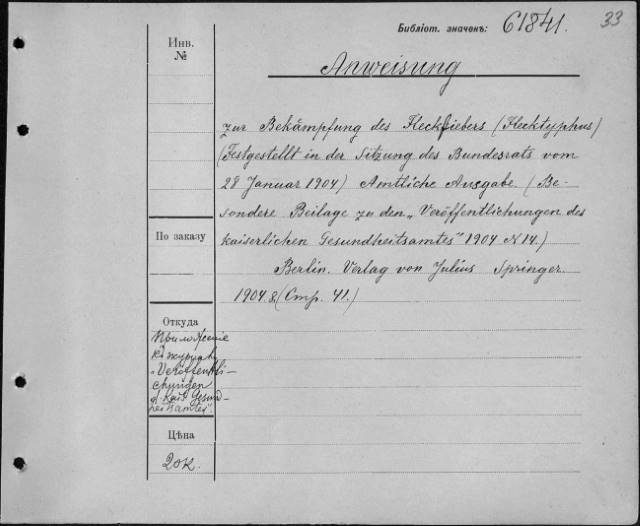 Библіот. значенъ: 61841.
33
Инв.
№
Anweisung
zur Bekämpfung des Fleckfiebers (Flecktyphus)
(Festgestellt in der Sitzung des Bundesrats vom
28 Januar 1904) Amtliche Ausgabe. (Be-
sondere Beilage zu den „Veröffentlichungen des
kaiserlichen Gesundheitsamtes" 1904 N 14.)
Berlin. Verlag von Julius Springer.
1904. 8. (Стр. 41.)
По заказу
Откуда
Приложеніе
къ журналу
„Veröffentli-
chungen
d. Kais. Gesund-
heitsamtes"
Цѣна
20к.